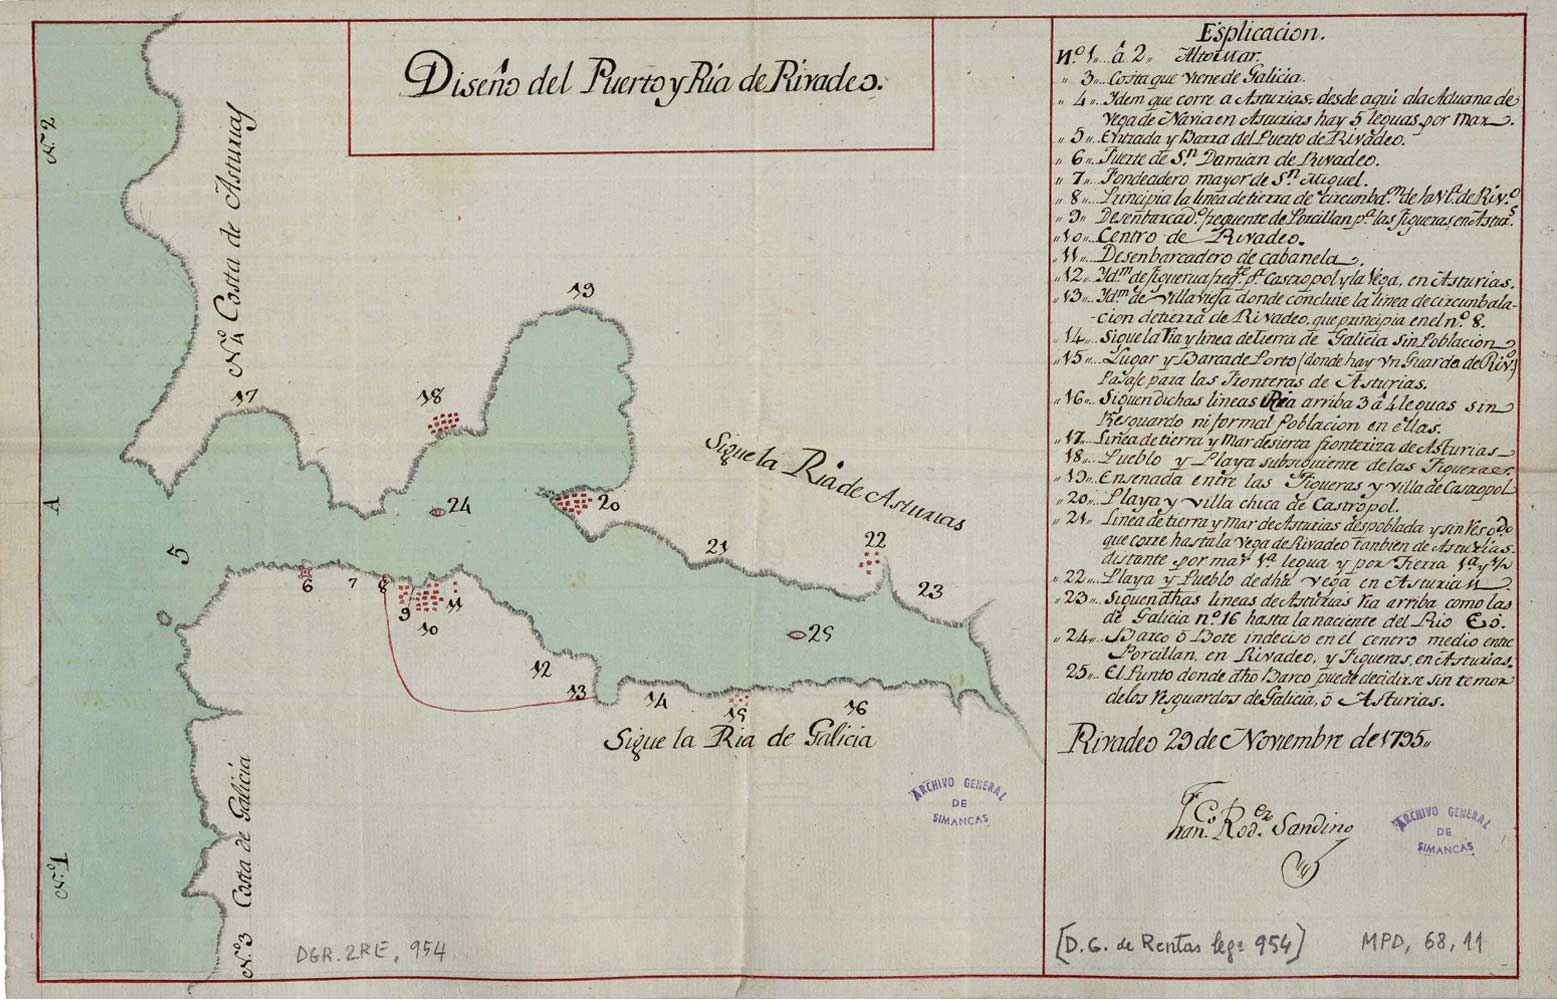 Diseño del Puerto y Ria de Rivadeo.
N.º 2
Nº 4 Costa de Asturias
17
18
19
Sigue la Ria de Asturias
A
24
20
5
21
22
23
6
7
8
9
11
10
25
12
13
14
15
16
Sigue la Ria de Galicia
N.º 1
N.º 3 Costa de Galicia
ARCHIVO GENERAL
DE
SIMANCAS
DGR. 2RE, 954
Esplicacion.
N.º 1,, â 2,, Alto Mar.
,, 3,, Costa que viene de Galicia.
,, 4,, Ydem que corre a Asturias, desde aqui ala Aduana de
Vega de Navia en Asturias hay 5 leguas por mar.
,, 5,, Entrada y Barra del Puerto de Rivadeo.
,, 6,, Fuerte de S.n Damian de Rivadeo.
,, 7,, Fondeadero mayor de S.n Miguel.
,, 8,, Principia la linea de tierra de circunb.on de la V.a de Riv.o
,, 9,, Desenbarcad.o frequente de Porcillan p.a las Figueras, en Astur.s
,, 10,, Centro de Rivadeo.
,, 11,, Desenbarcadero de cabanela.
,, 12,, Yd.m de Figueirua freq.te p.a Castropol y la Vega, en Asturias.
,, 13,, Yd.m de Villavieja donde concluie la linea de circunbala-
-cion de tierra de Rivadeo, que principia en el n.º 8.
,, 14,, Sigue la Ria y linea de tierra de Galicia sin Poblacion
,, 15,, Lugar y Barca de Porto (donde hay Vn Guarda de Riv.o)
Pasaje para las Fronteras de Asturias.
,, 16,, Siguen dichas lineas Ria arriba 3 â 4 leguas sin
Resguardo ni formal Poblacion en ellas.
,, 17,, Linea de tierra y Mar desierta fronteriza de Asturias
18,, Pueblo y Playa subsiguiente de las Figueras.
,, 19,, Ensenada entre las Figueras y Villa de Castropol
,, 20,, Playa y Villa chica de Castropol.
,, 21,, Linea de tierra y Mar de Asturias despoblada y sin Resg.do
que corre hasta la Vega de Rivadeo tanbien de Asturias.
distante por mar 1.a legua y por tierra 1.a y 1/2
,, 22,, Playa y Pueblo de dha Vega en Asturias
,, 23,, Siguen dhas lineas de Asturias Ria arriba como las
de Galicia n.º 16 hasta la naciente del Rio Eó.
,, 24,, Barco ô Bote indeciso en el centro medio entre
Porcillan, en Rivadeo, y Figueras, en Asturias.
25,, El Punto donde dho Barco puede decidirse sin temor
de los resguardos de Galicia, ò Asturias.
Rivadeo 29 de Noviembre de 1795,,
Fran.co Rod.ez Sandino
ARCHIVO GENERAL
DE
SIMANCAS
[D.G. de Rentas leg.º 954]
MPD, 68, 11